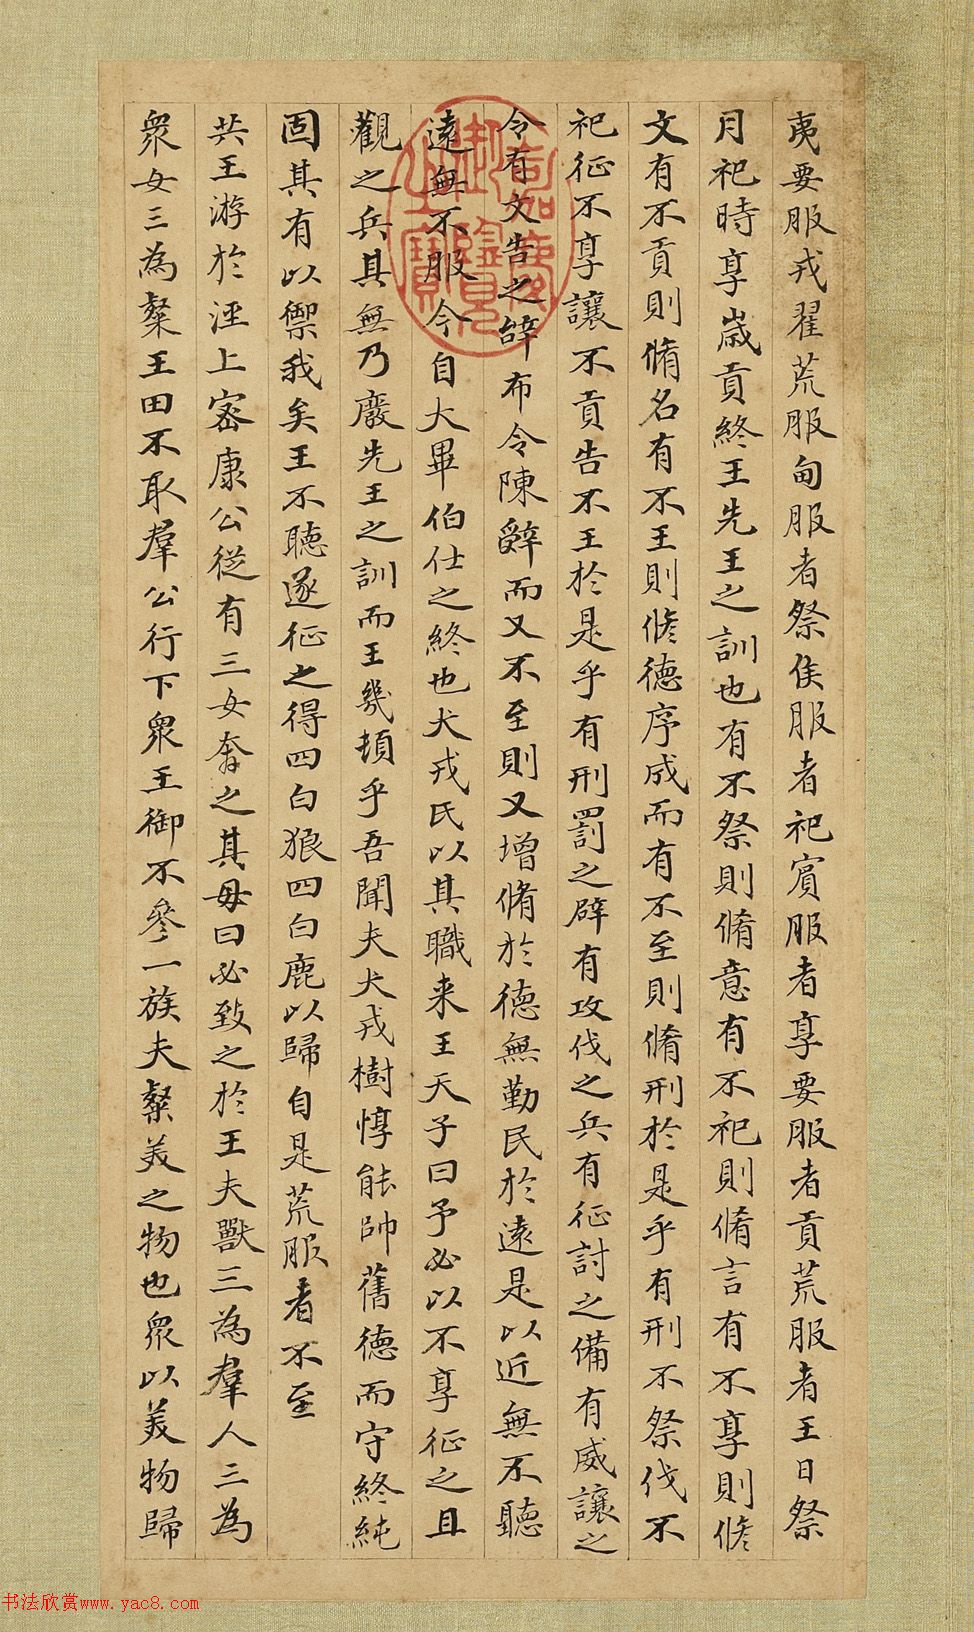 夷要服戎翟荒服甸服者祭侯服者祀賓服者享要服者貢荒服者王日祭
月祀時享歲貢終王先王之訓也有不祭則脩意有不祀則脩言有不享則脩
文有不貢則脩名有不王則脩德序成而有不至則脩刑於是乎有刑不祭伐不
祀征不享讓不貢告不王於是乎有刑罰之辟有攻伐之兵有征討之備有威讓之
令有文告之辭布令陳辭而又不至則又增脩於德無勤民於遠是以近無不聽
遠無不服今自大畢伯仕之終也犬戎氏以其職来王天子曰予必以不享征之且
觀之兵其無乃廢先王之訓而王幾頓乎吾聞夫犬戎樹惇能帥舊德而守終純
固其有以禦我矣王不聽遂征之得四白狼四白鹿以歸自是荒服者不至
共王游於涇上密康公從有三女奔之其母曰必致之於王夫獸三為羣人三為
眾女三為粲王田不取羣公行下眾王御不參一族夫粲美之物也眾以美物歸
嘉慶御覽之寶
书法欣赏www.yac8.com